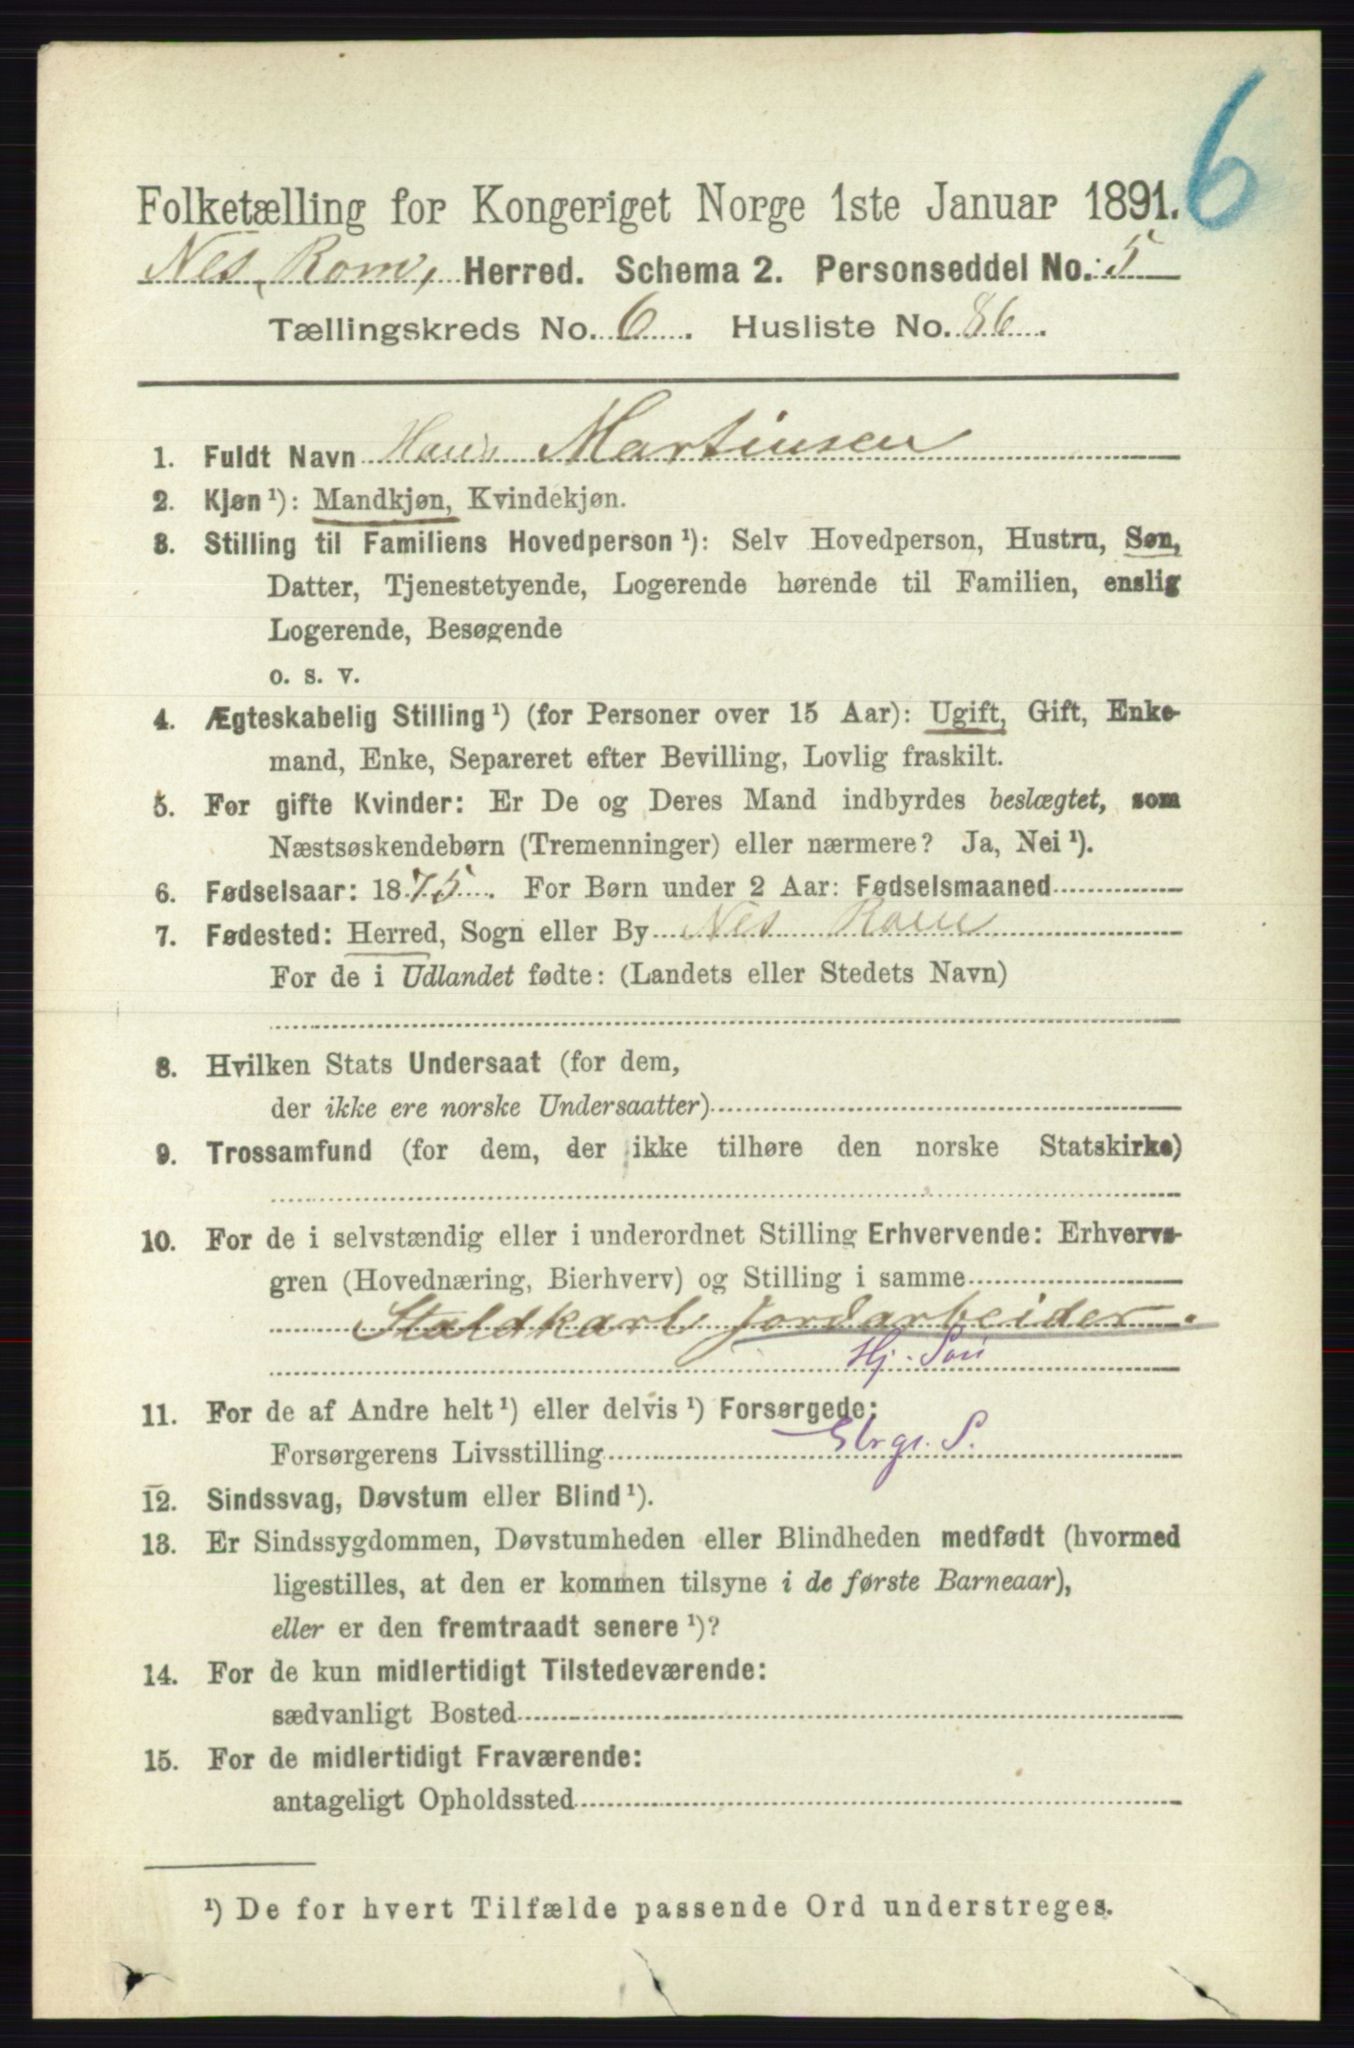 6
Folketælling for Kongeriget Norge 1ste Januar 1891.
Nes, Rom, Herred. Schema 2. Personseddel No. 5
Tællingskreds No. 6. Husliste No. 86.
1. Fuldt Navn Hans Martinsen
2. Kjøn ¹): Mandkjøn, Kvindekjøn.
3. Stilling til Familiens Hovedperson ¹): Selv Hovedperson, Hustru, Søn,
Datter, Tjenestetyende, Logerende hørende til Familien, enslig
Logerende, Besøgende
o. s. v.
4. Ægteskabelig Stilling ¹) (for Personer over 15 Aar): Ugift, Gift, Enke-
mand, Enke, Separeret efter Bevilling, Lovlig fraskilt.
5. For gifte Kvinder: Er De og Deres Mand indbyrdes beslægtet, som
Næstsøskendebørn (Tremenninger) eller nærmere? Ja, Nei ¹).
6. Fødselsaar: 1875. For Børn under 2 Aar: Fødselsmaaned
7. Fødested: Herred, Sogn eller By Nes Rom
For de i Udlandet fødte: (Landets eller Stedets Navn)
8. Hvilken Stats Undersaat (for dem,
der ikke ere norske Undersaatter)
9. Trossamfund (for dem, der ikke tilhøre den norske Statskirke)
10. For de i selvstændig eller i underordnet Stilling Erhvervende: Erhvervs-
gren (Hovednæring, Bierhverv) og Stilling i samme
Staldkarl Jordarbeider.
Hj. Søn
11. For de af Andre helt ¹) eller delvis ¹) Forsørgede:
Forsørgerens Livsstilling S.
12. Sindssvag, Døvstum eller Blind ¹).
13. Er Sindssygdommen, Døvstumheden eller Blindheden medfødt (hvormed
ligestilles, at den er kommen tilsyne i de første Barneaar),
eller er den fremtraadt senere ¹)?
14. For de kun midlertidigt Tilstedeværende:
sædvanligt Bosted
15. For de midlertidigt Fraværende:
antageligt Opholdssted
¹) De for hvert Tilfælde passende Ord understreges.